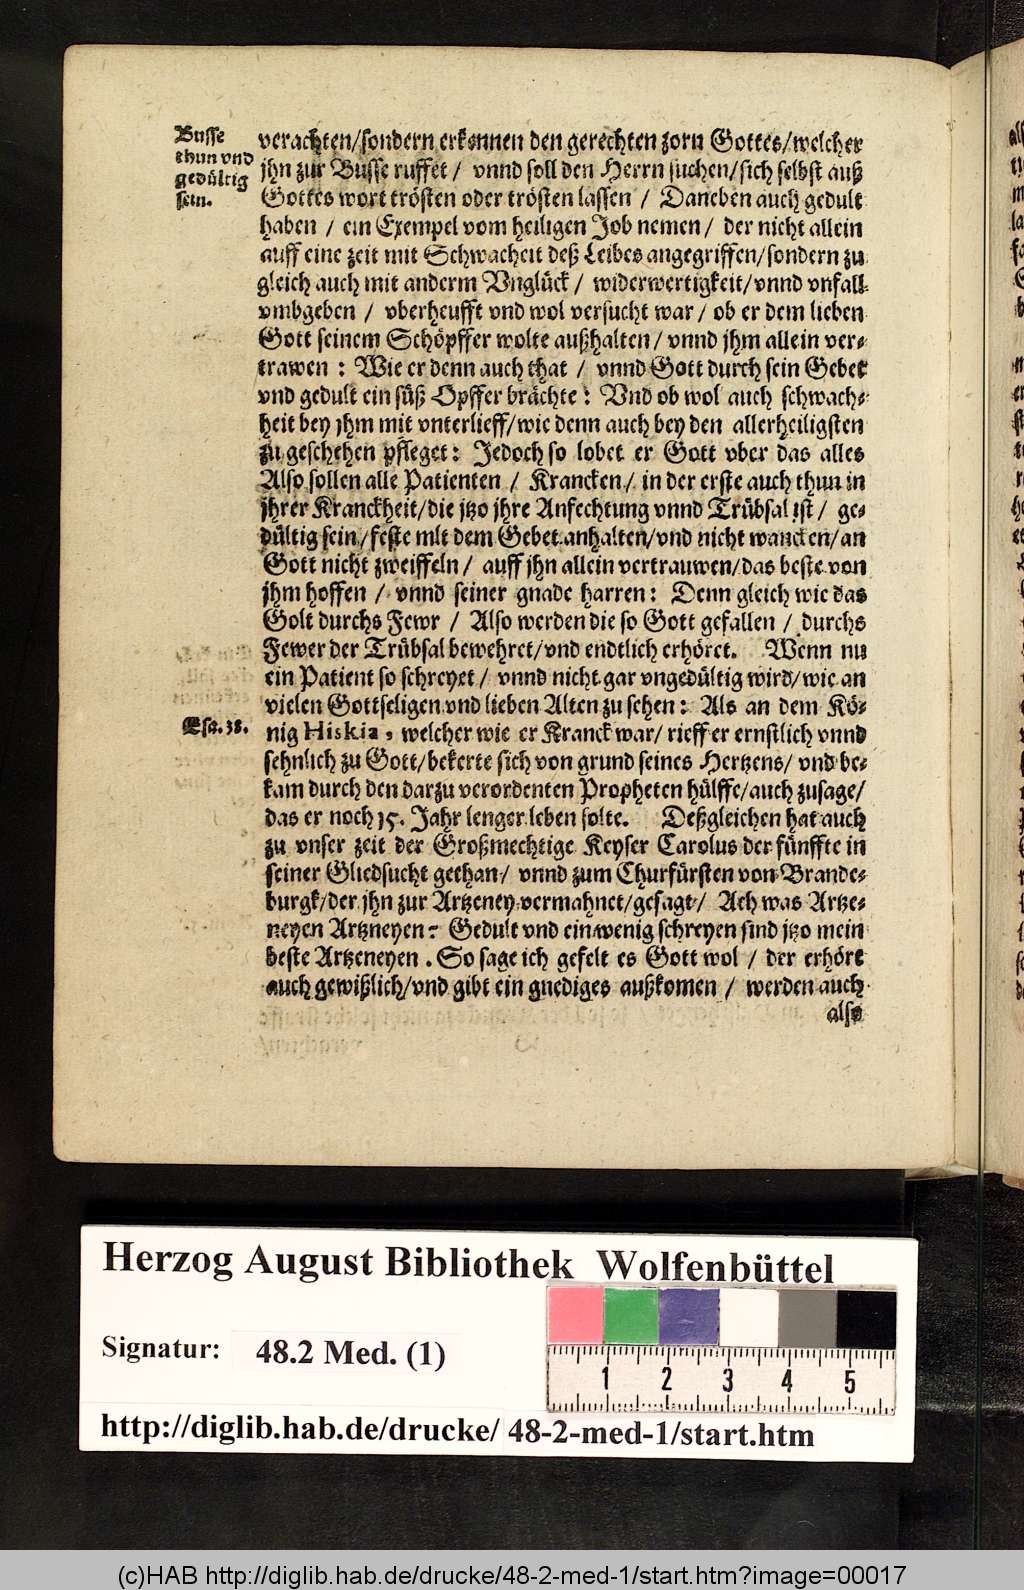 Busse
thun vnd
gedültig
sein.
verachten/sondern erkennen den gerechten zorn Gottes/welcher
jhn zur Busse ruffet / vnnd soll den Herrn suchen/sich selbst auß
Gottes wort trösten oder trösten lassen / Daneben auch gedult
haben / ein Exempel vom heiligen Job nemen / der nicht allein
auff eine zeit mit Schwacheit deß Leibes angegriffen/sondern zu
gleich auch mit anderm Vnglück / widerwertigkeit/vnnd vnfall
vmbgeben / vberheufft vnd wol versucht war / ob er dem lieben
Gott seinem Schöpffer wolte außhalten / vnnd jhm allein ver-
trawen : Wie er denn auch that / vnnd Gott durch sein Gebet
vnd gedult ein süß Opffer brächte : Vnd ob wol auch schwach-
heit bey jhm mit vnterlieff/wie denn auch bey den allerheiligsten
zu geschehen pfleget : Jedoch so lobet er Gott vber das alles
Also sollen alle Patienten / Krancken / in der erste auch thun in
jhrer Kranckheit/die jtzo jhre Anfechtung vnnd Trübsal ist / ge-
dültig sein/feste mit dem Gebet anhalten/vnd nicht wancken/an
Gott nicht zweiffeln / auff jhn allein vertrauwen/das beste von
jhm hoffen / vnnd seiner gnade harren : Denn gleich wie das
Golt durchs Fewr / Also werden die so Gott gefallen / durchs
Fewer der Trübsal bewehret/vnd endtlich erhöret. Wenn nu
ein Patient so schreyet / vnnd nicht gar vngedültig wird/wie an
vielen Gottseligen vnd lieben Alten zu sehen : Als an dem Kö-
Esa. 38.
nig Hiskia, welcher wie er Kranck war/ rieff er ernstlich vnnd
sehnlich zu Gott/bekerte sich von grund seines Hertzens/ vnd be-
kam durch den darzu verordenten Propheten hülffe/auch zusage/
das er noch 15. Jahr lenger leben solte. Deßgleichen hat auch
zu vnser zeit der Großmechtige Keyser Carolus der fünffte in
seiner Gliedsucht gethan/ vnnd zum Churfürsten von Brande-
burgk/der jhn zur Artzeney vermahnet/gesagt / Ach was Artze-
neyen Artzneyen : Gedult vnd ein wenig schreyen sind jtzo mein
beste Artzeneyen . So sage ich gefelt es Gott wol / der erhört
auch gewißlich/vnd gibt ein gnediges außkomen / werden auch
also
Herzog August Bibliothek Wolfenbüttel
Signatur: 48.2 Med. (1)
1 2 3 4 5
http://diglib.hab.de/drucke/ 48-2-med-1/start.htm
(c)HAB http://diglib.hab.de/drucke/48-2-med-1/start.htm?image=00017